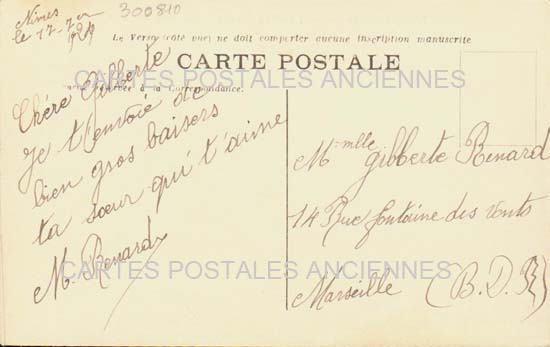 Nimes
le 17-7
300810
Le Verso (côté vue) ne doit comporter aucune inscription manuscrite
CARTE POSTALE
CARTES POSTALES ANCIENNES
à la Correspondance.
Chère Gilberte
Je t'envoie de
bien gros baisers
ta sœur qui t'aime
M. Renard
Mmlle Gilberte Renard
14 Rue fontaine des vents
Marseille (B. D. R)
CARTES POSTALES ANCIENNES